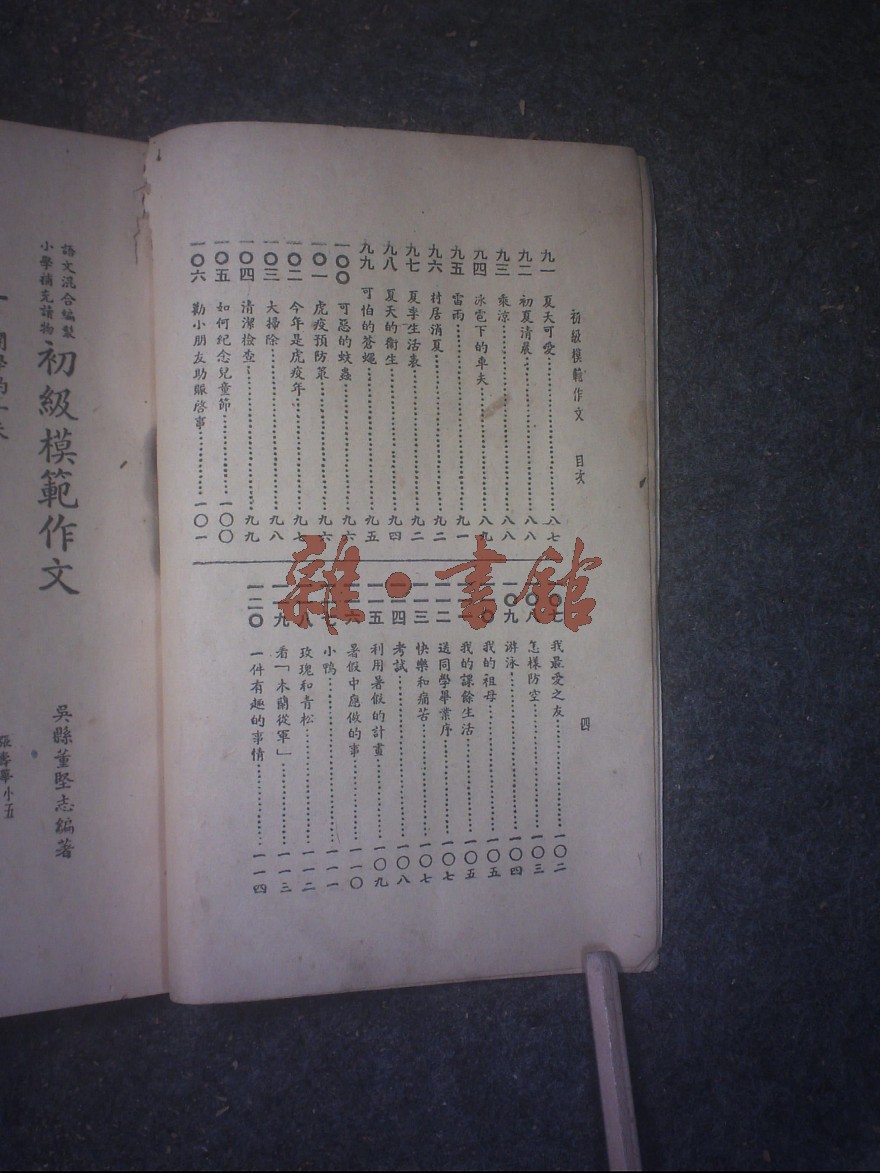 初級模範作文　目次
四
九一　夏天可愛…………八七
九二　初夏清晨…………八八
九三　乘涼…………八八
九四　冰雹下的車夫…………八九
九五　雷雨…………九一
九六　村居消夏…………九二
九七　夏季生活表…………九二
九八　夏天的衞生…………九四
九九　可怕的蒼蠅…………九五
一〇〇　可惡的蚊蟲…………九六
一〇一　虎疫預防策…………九六
一〇二　今年是虎疫年…………九七
一〇三　大掃除…………九八
一〇四　清潔檢查…………九九
一〇五　如何紀念兒童節…………一〇〇
一〇六　勸小朋友助賑啓事…………一〇一
一〇七　我最愛之友…………一〇二
一〇八　怎樣防空…………一〇三
一〇九　游泳…………一〇四
一一〇　我的祖母…………一〇五
一一一　我的課餘生活…………一〇五
一一二　送同學畢業序…………一〇七
一一三　快樂和痛苦…………一〇七
一一四　考試…………一〇八
一一五　利用暑假的計畫…………一〇九
一一六　暑假中應做的事…………一一〇
一一七　小鴨…………一一一
一一八　玫瑰和青松…………一一二
一一九　看「木蘭從軍」…………一一三
一二〇　一件有趣的事情…………一一四
雜·書館
語文混合編製
小學補充讀物
初級模範作文
吳縣董堅志編著